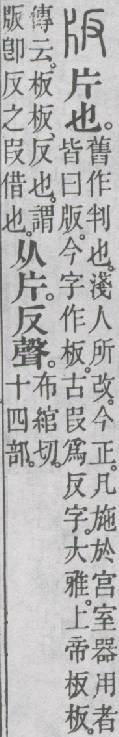 版
片也。
舊作判也。淺人所改。今正。凡施於宫室器用者
皆曰版。今字作板。古叚爲反字。大雅。上帝板板。
傳云。板板、反也。謂
版卽反之叚借也。
从片。反聲。
布綰切。
十四部。